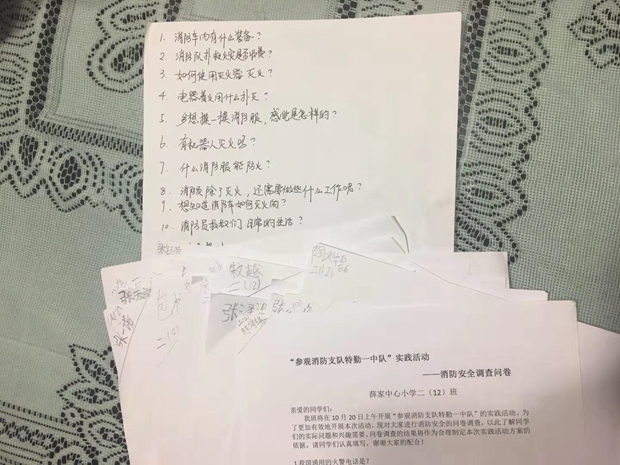 1. 消防车内有什么装备？
2. 消防队扑救火灾是否收费？
3. 如何使用灭火器灭火？
4. 电器着火用什么扑灭？
5. 想摸一摸消防服，感觉是怎样的？
6. 有机器人灭火吗？
7. 什么消防服能防火？
8. 消防员除了灭火，还需要做些什么工作呢？
9. 想知道消防车如何灭火的？
10. 消防员叔叔们日常的生活？
牧越
二(12)
二(12)
"参观消防支队特勤一中队"实践活动
——消防安全调查问卷
薛家中心小学二（12）班
亲爱的同学们：
我班将在10月20日上午开展"参观消防支队特勤一中队"的实践活动，为
了更加有效地开展本次活动，现对大家进行消防安全的问卷调查，以此了解同学
们的实际问题和兴趣需要，问卷调查的结果将作为合理制定本次实践活动方案的
依据。请同学们认真填写，谢谢大家的配合！
1.我国通用的火警电话是？